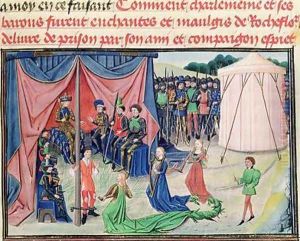 amoy en ce faisant Comment charlemeine et ses
barons furent enchantes et maulgis de Rocheflo
deliure de prison par son amy et compaignon espiet